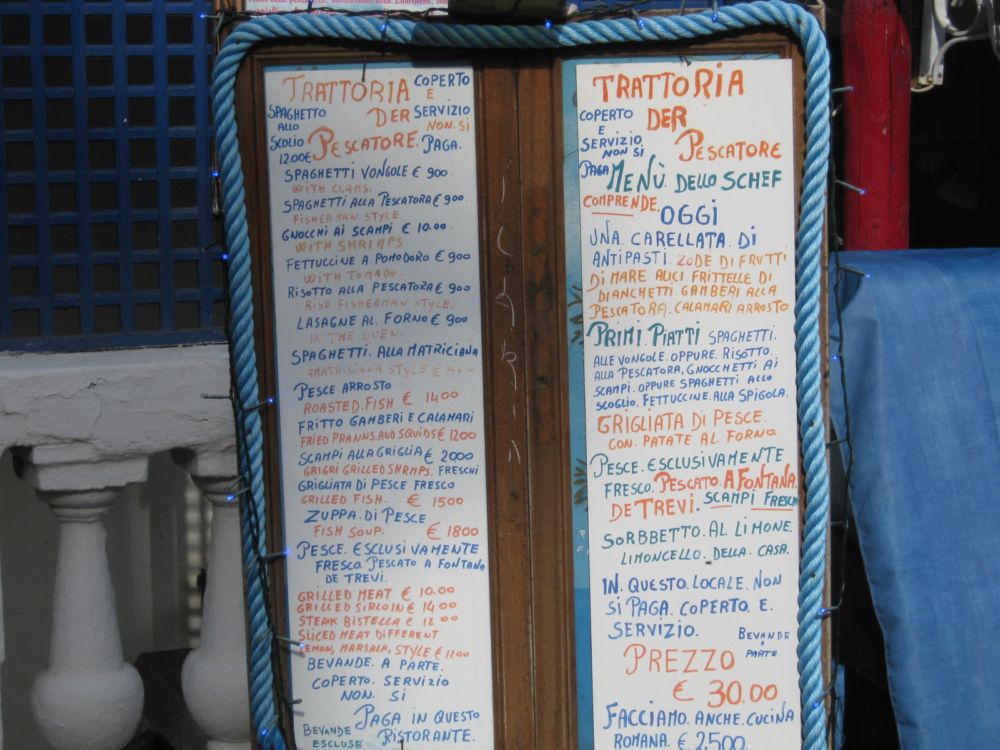 TRATTORIA COPERTO
E
SPAGHETTO DER SERVIZIO
ALLO NON. SI
SCOLIO PESCATORE. PAGA.
12.00E
SPAGHETTI VONGOLE € 900
WITH CLAMS.
SPAGHETTI ALLA PESCATORA € 900.
FISHERMAN STYLE
GNOCCHI AI SCAMPI € 10.00.
WITH SHRIMPS
FETTUCCINE A POMODORO € 900
WITH TOMADO.
RISOTTO ALLA PESCATORA € 900
RISE FISHERMAN STYLE.
LASAGNE AL. FORNO € 900
IN THE OVEN.
SPAGHETTI. ALLA MATRICIANA
AMATRICIANA STYLE €
PESCE ARROSTO
ROASTED. FISH € 1400
FRITTO GAMBERI E CALAMARI
FRIED PRANNS. AND SQUIDS € 1200
SCAMPI ALLA GRIGLIA € 2000
GRIGRI GRILLED SHRMPS. FRESCHI
GRIGLIATA DI PESCE FRESCO
GRILLED FISH. € 1500
ZUPPA. DI PESCE
FISH SOUP. € 1800
PESCE. ESCLUSIVAMENTE
FRESCO. PESCATO A FONTANA
DE TREVI.
GRILLED MEAT € 10.00
GRILLED SIRLOIN € 14 00
STEAK BISTELLA € 12 00
SLICED MEAT DIFFERENT
LEMON, MARSALA, STYLE € 1200
BEVANDE. A PARTE.
COPERTO. SERVIZIO
NON. SI
PAGA IN QUESTO
BEVANDE RISTORANTE.
ESCLUSE
TRATTORIA
COPERTO DER
E
SERVIZIO PESCATORE
NON SI
PAGA MENÙ. DELLO SCHEF
COMPRENDE. OGGI
UNA. CARELLATA. DI
ANTIPASTI. ZODE DI FRUTTI
DI MARE ALICI FRITTELLE DI
BIANCHETTI GAMBERI ALLA
PESCATORA. CALAMARI ARROSTO
PRIMI. PIATTI SPAGHETTI.
ALLE VONGOLE. OPPURE. RISOTTO.
ALLA PESCATORA, GNOCCHETTI AI
SCAMPI. OPPURE SPAGHETTI ALLO
SCOGLIO. FETTUCCINE. ALLA SPIGOLA.
GRIGLIATA DI PESCE.
CON. PATATE AL. FORNO.
PESCE. ESCLUSIVAMENTE
FRESCO. PESCATO. A FONTANA.
DE TREVI. SCAMPI FRESCHI
SORBBETTO. AL LIMONE.
LIMONCELLO. DELLA. CASA.
IN. QUESTO. LOCALE. NON
SI PAGA. COPERTO. E.
SERVIZIO. BEVANDE
A
PARTE
PREZZO
€ 30.00
FACCIAMO. ANCHE. CUCINA
ROMANA. € 2500.